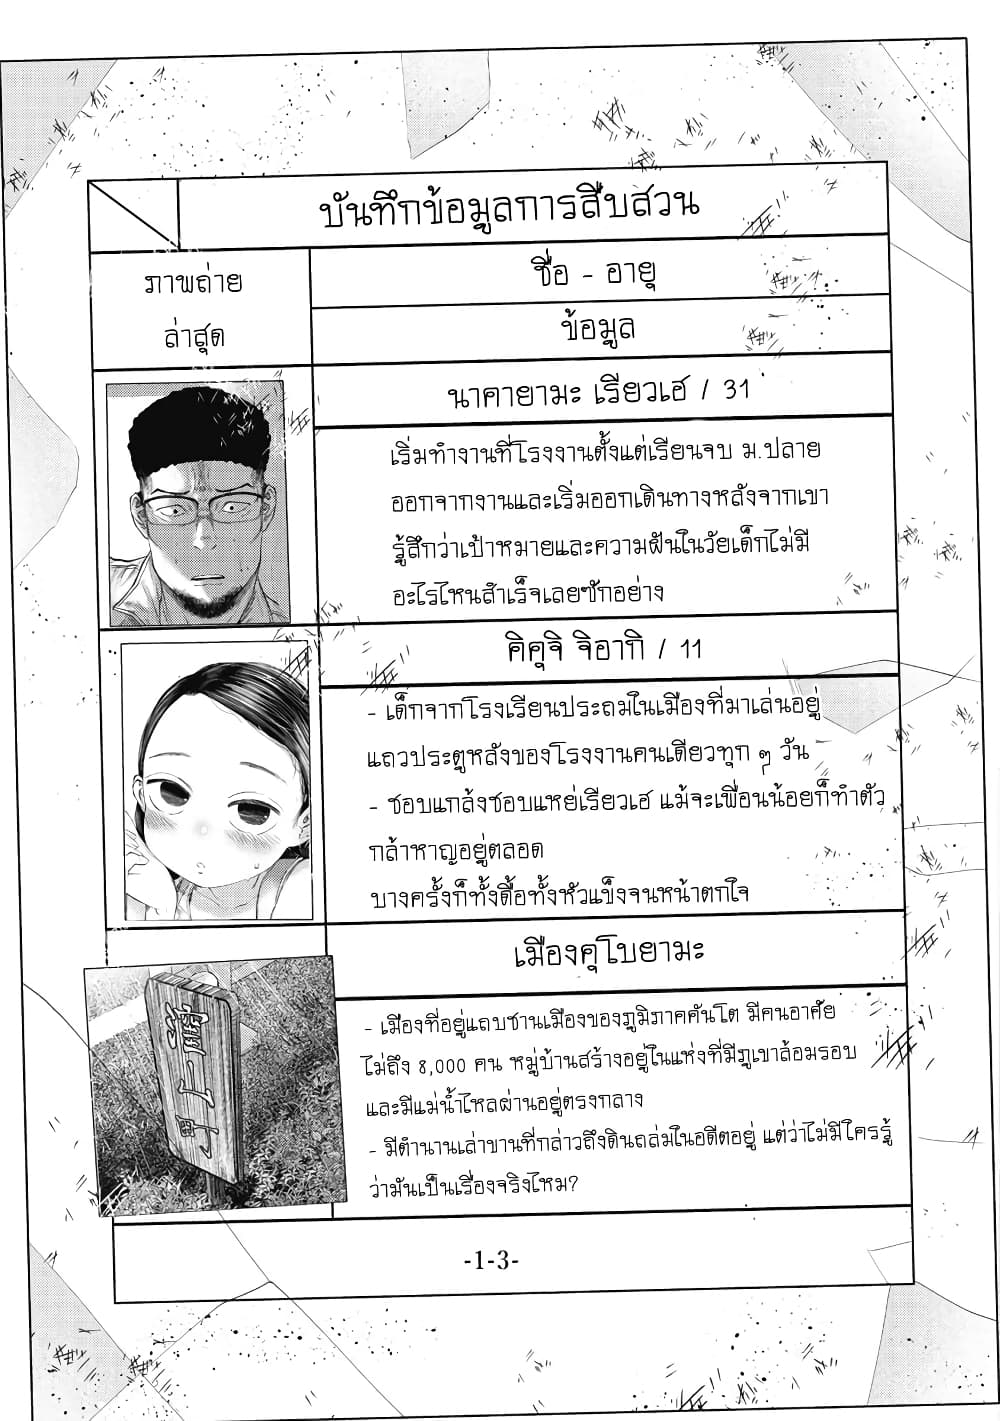 บันทึกข้อมูลการสืบสวน
ภาพถ่าย
ล่าสุด
ชื่อ - อายุ
ข้อมูล
นาคายามะ เรียวเฮ / 31
เริ่มทำงานที่โรงงานตั้งแต่เรียนจบ ม.ปลาย
ออกจากงานและเริ่มออกเดินทางหลังจากเขา
รู้สึกว่าเป้าหมายและความฝันในวัยเด็กไม่มี
อะไรไหนสำเร็จเลยซักอย่าง
คิคุจิ จิอากิ / 11
- เด็กจากโรงเรียนประถมในเมืองที่มาเล่นอยู่
แถวประตูหลังของโรงงานคนเดียวทุก ๆ วัน
- ชอบแกล้งชอบแหย่เรียวเฮ แม้จะเพื่อนน้อยก็ทำตัว
กล้าหาญอยู่ตลอด
บางครั้งก็ทั้งดื้อทั้งหัวแข็งจนหน้าตกใจ
เมืองคุโบยามะ
- เมืองที่อยู่แถบชานเมืองของภูมิภาคคันโต มีคนอาศัย
ไม่ถึง 8,000 คน หมู่บ้านสร้างอยู่ในแห่งที่มีภูเขาล้อมรอบ
และมีแม่น้ำไหลผ่านอยู่ตรงกลาง
- มีตำนานเล่าขานที่กล่าวถึงดินถล่มในอดีตอยู่ แต่ว่าไม่มีใครรู้
ว่ามันเป็นเรื่องจริงไหม?
-1-3-